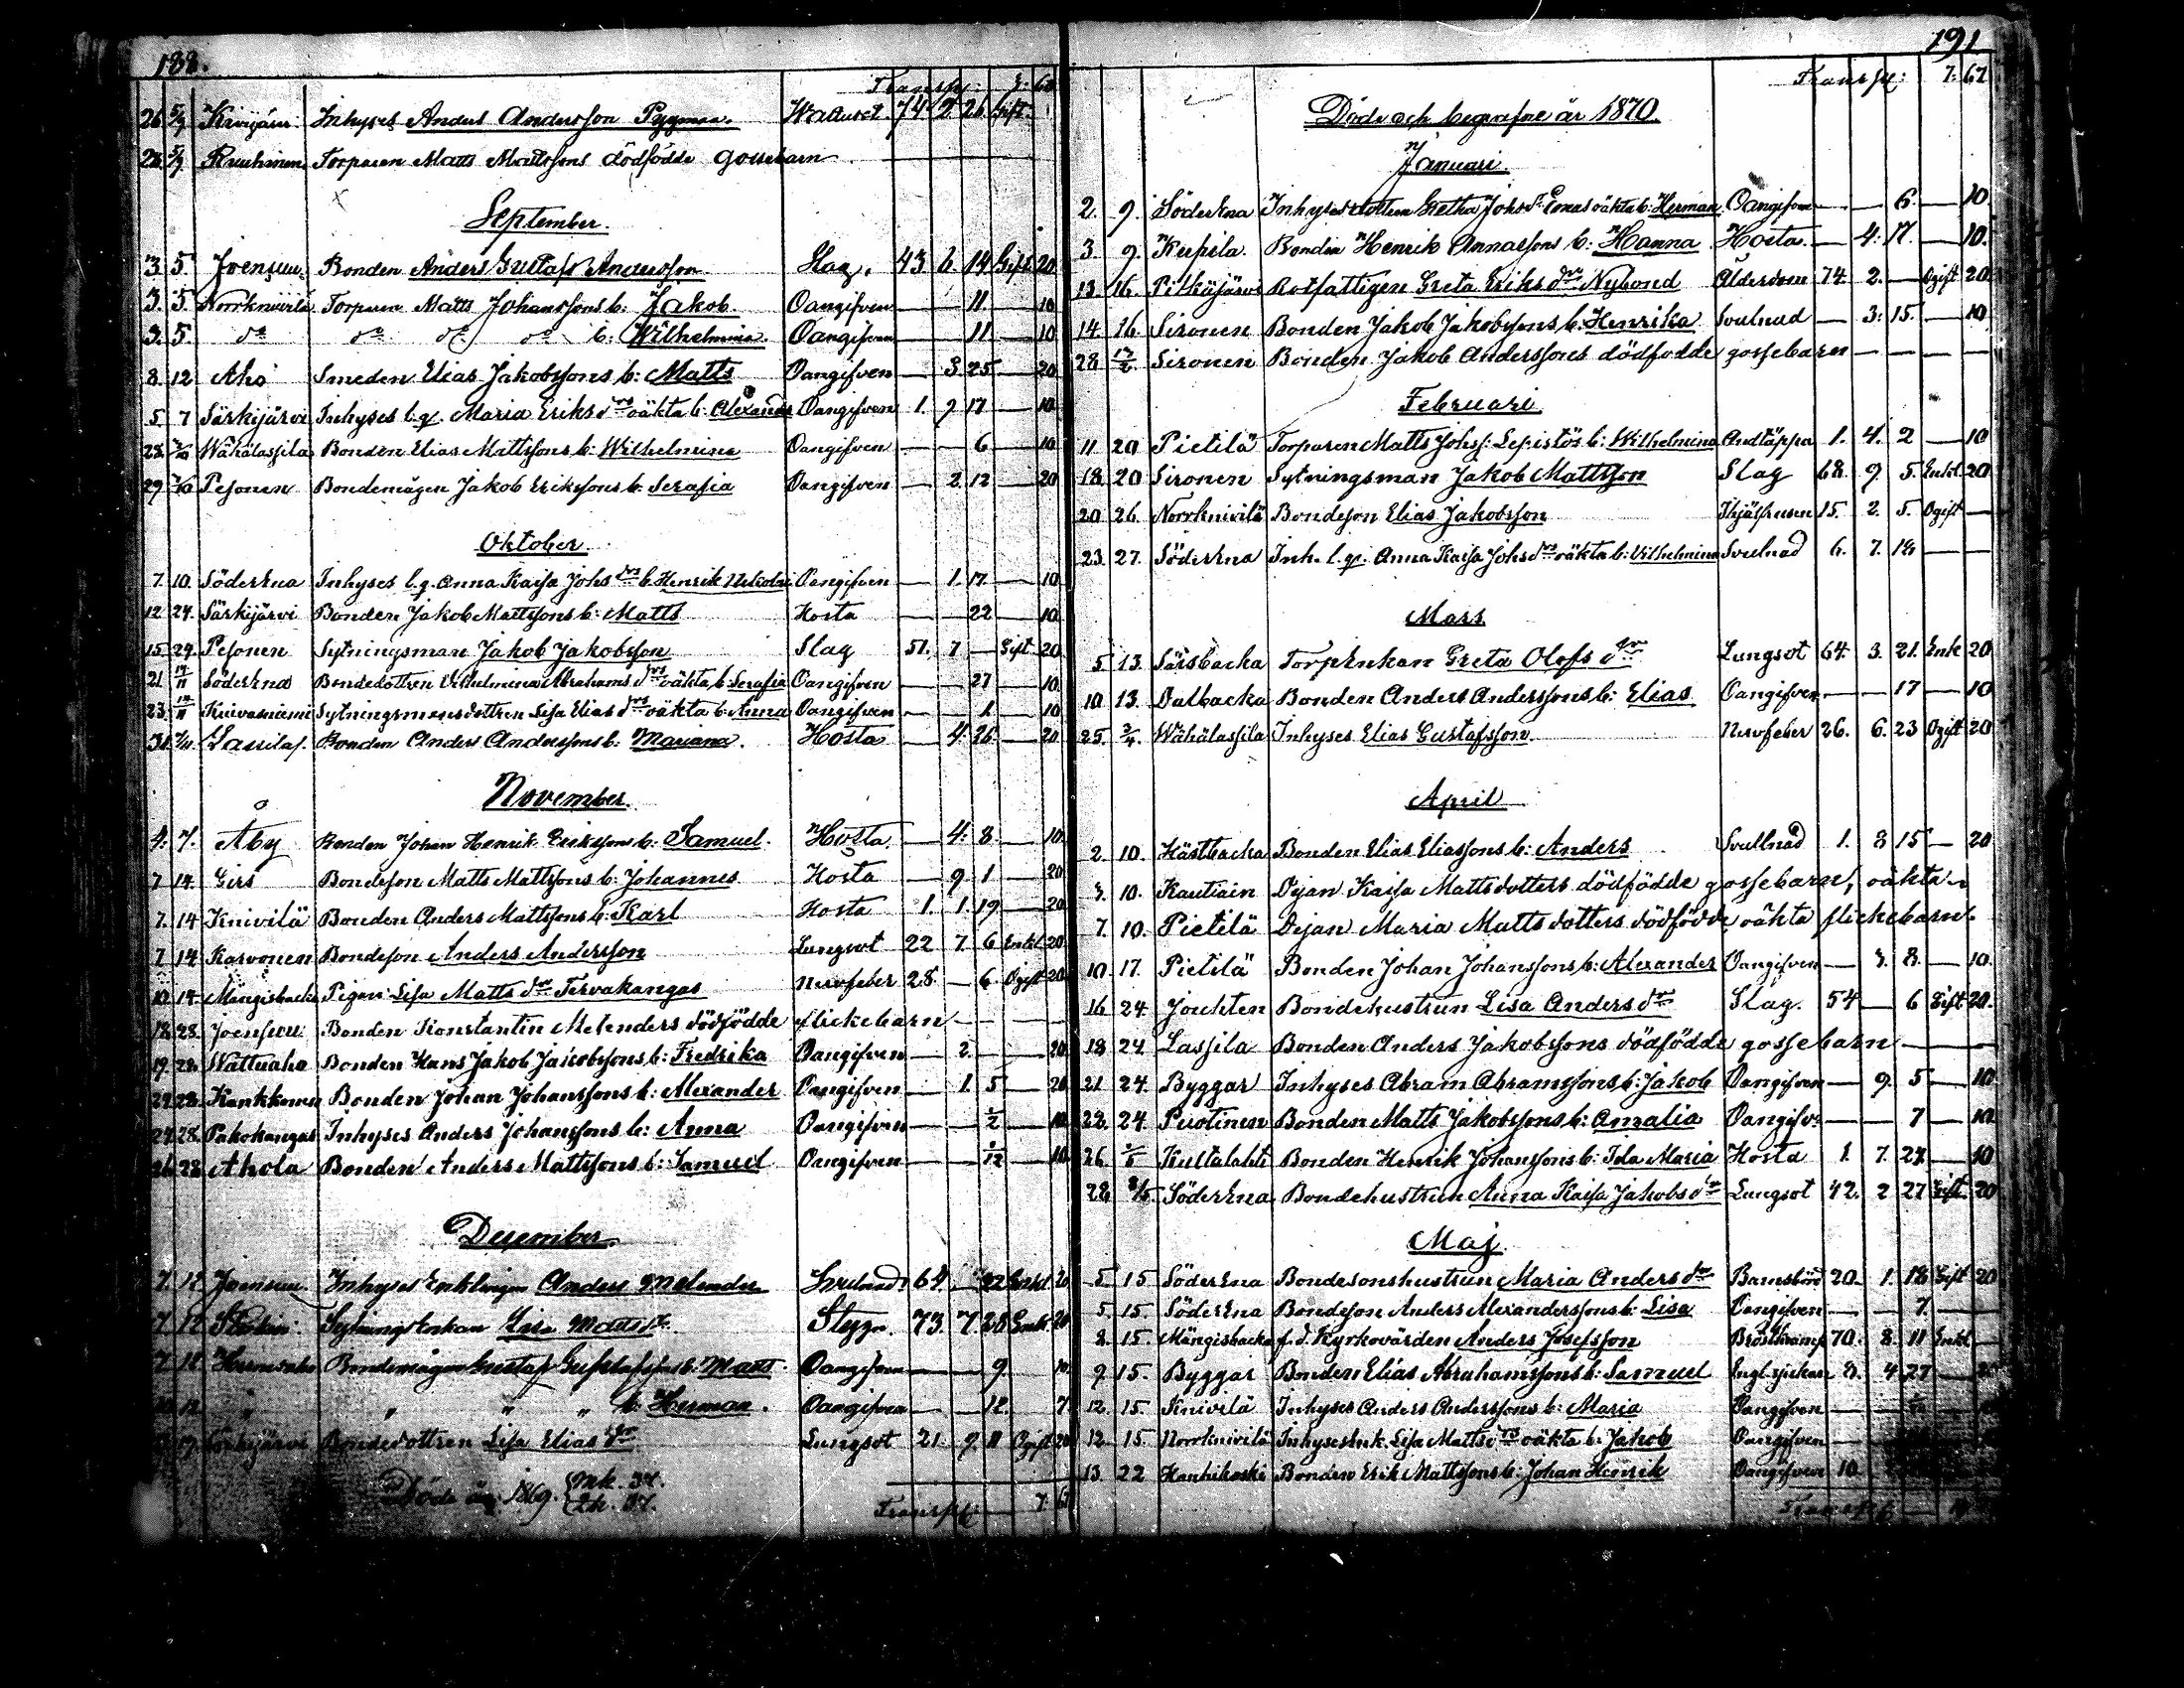 188.
Transp: 7. 60
26 5/9 Kivijärvi Inhyses Anders Andersson Pyyman. Wattusot. 74 2 26 Gift.
28. 5/9. Ruuhinen Torparen Matts Mattssons dödfödde gossebarn
September.
3 5. Joensuu Bonden Anders Gustaf Andersson Slag. 43 6 14 Gift 20
3. 5. Norrknivilä Torparen Matts Johanssons b: Jakob. Oangifven — — 11. — 10
3. 5 do do do do b: Wilhelmina. Oangifven — — 11 — 10
8. 12 Aho Smeden Elias Jakobssons b: Matts Oangifven — 3 25 — 20
5 7 Särkijärvi Inhyses l.q. Maria Eriksdrs oäkta b: Alexander Oangifven 1. 9 17 — 10
28. Wähälassila Bonden Elias Mattssons b: Wilhelmina Oangifven — — 6 — 10
29 Pesonen Bondemågen Jakob Erikssons b: Serafia Oangifven — 2. 12 — 20
Oktober
7. 10. SöderEna Inhyses l.q. Anna Kaisa Johsdrs b. Henrik Nikolai Oangifven — 1. 17 — 10
12 24. Särkijärvi Bonden Jakob Mattssons b: Matts Hosta — — 22 — 10.
15. 24. Pesonen Sytningsman Jakob Jakobsson Slag 51. 7 — Gift 20
21. 14/11 SöderEna Bondedottren Wilhelmina Abrahamsdrs oäkta b: Serafia Oangifven — — 27 — 10
23. 14/11 Knivasniemi Sytningsmansdottren Lisa Eliasdrs oäkta b: Anna Oangifven — — 1 — 10
31. 7/11. Lassilas. Bonden Anders Anderssons b: Mariana. Hosta — 4. 26. — 20
November.
4. 7. Åby Bonden Johan Henrik Erikssons b: Samuel. Hosta — 4: 8. — 10.
7 14. Girs Bondeson Matts Mattssons b: Johannes Hosta — 9 1 — 20
7. 14 Knivilä Bonden Anders Mattssons b: Karl Hosta 1. 1. 19 — 20
7 14 Karvonen Bondeson Anders Andersson Lungsot 22 7. 6 Enkl 20
10. 14. Mängisbacka Pigan Lisa Mattsdr Tervakangas Nervfeber 28. — 6. Ogift 20
18. 28. Joensuu Bonden Konstantin Melenders dödfödde flickebarn
19. 28. Wattuaho Bonden Hans Jakob Jakobssons b: Fredrika Oangifven — 2. — — 20
24. 28. Kankkonen Bonden Johan Johanssons b: Alexander Oangifven — 1. 5 — 20
27. 28. Pakokangas Inhyses Anders Johanssons b: Anna Oangifven — — 1/2 — 10
26. 28. Ahola Bonden Anders Mattssons b: Samuel Oangifven — — 1/12 — 10.
December.
7. 12. Joensuu Inhyses Enklingen Anders Melender 64. 22 Enkl 20
7. 12 Sytningsenkan Lisa Mattsdr Stygn. 73. 7. 28 Enk. 20
7. 12. Bondemågen Gustaf Gustafssons b: Matts. Oangifven — — 9. 10.
12. " " " " b: Herman. Oangifven — — 12. 7.
Särkijärvi Bondedottren Lisa Eliasdr Lungsot 21. 9. 11 Ogift 20
Döde år 1869. Mk. 34. Qk. 37.
Transp: 7. 67
191
Transp: 7. 67
Döde och begrafne år 1870.
Januari.
2. 9. SöderEna Inhysesdottren Gretha Johsdr Enas oäkta b: Herman Oangifven — — 6. — 10.
3. 9. Keisala. Bonden Henrik Annassons b: Hanna Hosta. — 4: 17. — 10.
13. 16. Pitkäjärvi Rotfattigen Greta Eriksdr Nylund Ålderdom 74. 2. — Ogift 20
14. 16. Sironen Bonden Jakob Jakobssons b: Henrika Svulnad — 3: 15. — 10
28. Sironen Bonden Jakob Anderssons dödfödde gossebarn — — — — —
Februari
11 20 Pietilä Torparen Matts Johss: Lepistös b: Wilhelmina Andtäppa 1. 4. 2 — 10
18. 20 Sironen Sytningsman Jakob Mattsson Slag 68. 9. 5. Enkl 20
20 26. Norrknivilä Bondeson Elias Jakobsson Ihjälfrusen 15. 2. 5. Ogift —
23. 27. SöderEna Inh. l.q. Anna Kaisa Johsdrs oäkta b: Wilhelmina Svulnad 6. 7. 18 — —
Mars
5. 13. Särsbacka TorpEnkan Greta Olofsdr Lungsot 64. 3. 21. Enk 20
10. 13. Dalbacka Bonden Anders Anderssons b: Elias Oangifven — — 17 — 10
25. 3/4. Wähälassila Inhyses Elias Gustafsson. Nervfeber 26. 6. 23 Ogift 20
April
2. 10. Hästbacka Bonden Elias Eliassons b: Anders Svullnad 1. 8 15 — 20
3. 10. Kautiain Dejan Kaisa Mattsdotters dödfödde gossebarn, oäkta
7. 10. Pietilä Dejan Maria Mattsdotters dödfödde oäkta flickebarn
10. 17. Pietilä Bonden Johan Johanssons b: Alexander Oangifven — 3. 8. — 10.
16 24. Jouhten Bondehustrun Lisa Andersdr Slag. 54 — 6 Gift 20.
18 24. Lassila Bonden Anders Jakobssons dödfödde gossebarn
21. 24. Byggar Inhyses Abram Abramssons b: Jakob Oangifven — 9. 5 — 10
22. 24. Puotinen Bonden Matts Jakobssons b: Amalia Oangifv: — — 7 — 10.
26. Kultalahti Bonden Henrik Johanssons b: Ida Maria Hosta 1. 7. 27. — 10
28. 8/5. SöderEna Bondehustrun Anna Kaisa Jakobsdr Lungsot 42. 2 27 Gift 20
Maj.
5. 15 SöderEna Bondesonshustrun Maria Andersdr Barnsbörd 20. 1. 18 Gift 20
5. 15. SöderEna Bondeson Anders Alexanderssons b: Lisa Oangifven — — 7. —
8. 15. Mängisbacka f.d. Kyrkovärden Anders Josefsson Bröstkramp 70. 8. 11 Enkl —
9. 15. Byggar Bonden Elias Abrahamssons b: Samuel Engl. sjukan 4 27 — 20
12. 15. Knivilä Inhyses Anders Anderssons b: Maria Oangifven
12. 15. Norrknivilä InhysesEnk. Lisa Mattsdrs oäkta b: Jakob Oangifven
13. 22 Hanhikoski Bonden Erik Mattssons b: Johan Henrik Oangifven 10
Transp: